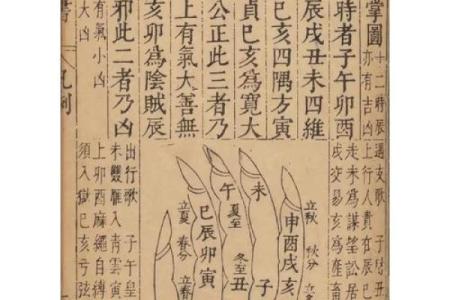 掌圖
十二時辰
亦有吉凶
時者子午卯酉
辰戌丑未四維
巳亥四隅方寅
貞巳亥為寬大
公正此三者乃
上有氣大善無
亥卯為陰賊辰
邪此二者乃凶
有氣小凶
大凶
書
凡例
支歌 子
上行人責在辰
走未為謀望訟居
戌交易亥為產畜
立秋
秋分
立
未
申酉戌亥
子
午
夏至
冬至
丑
巳辰卯寅
立夏
春分
立春
出行歌 子午皇
未雙雁入青雲寅
上卯酉麻繩自縛
須入獄巳亥弦